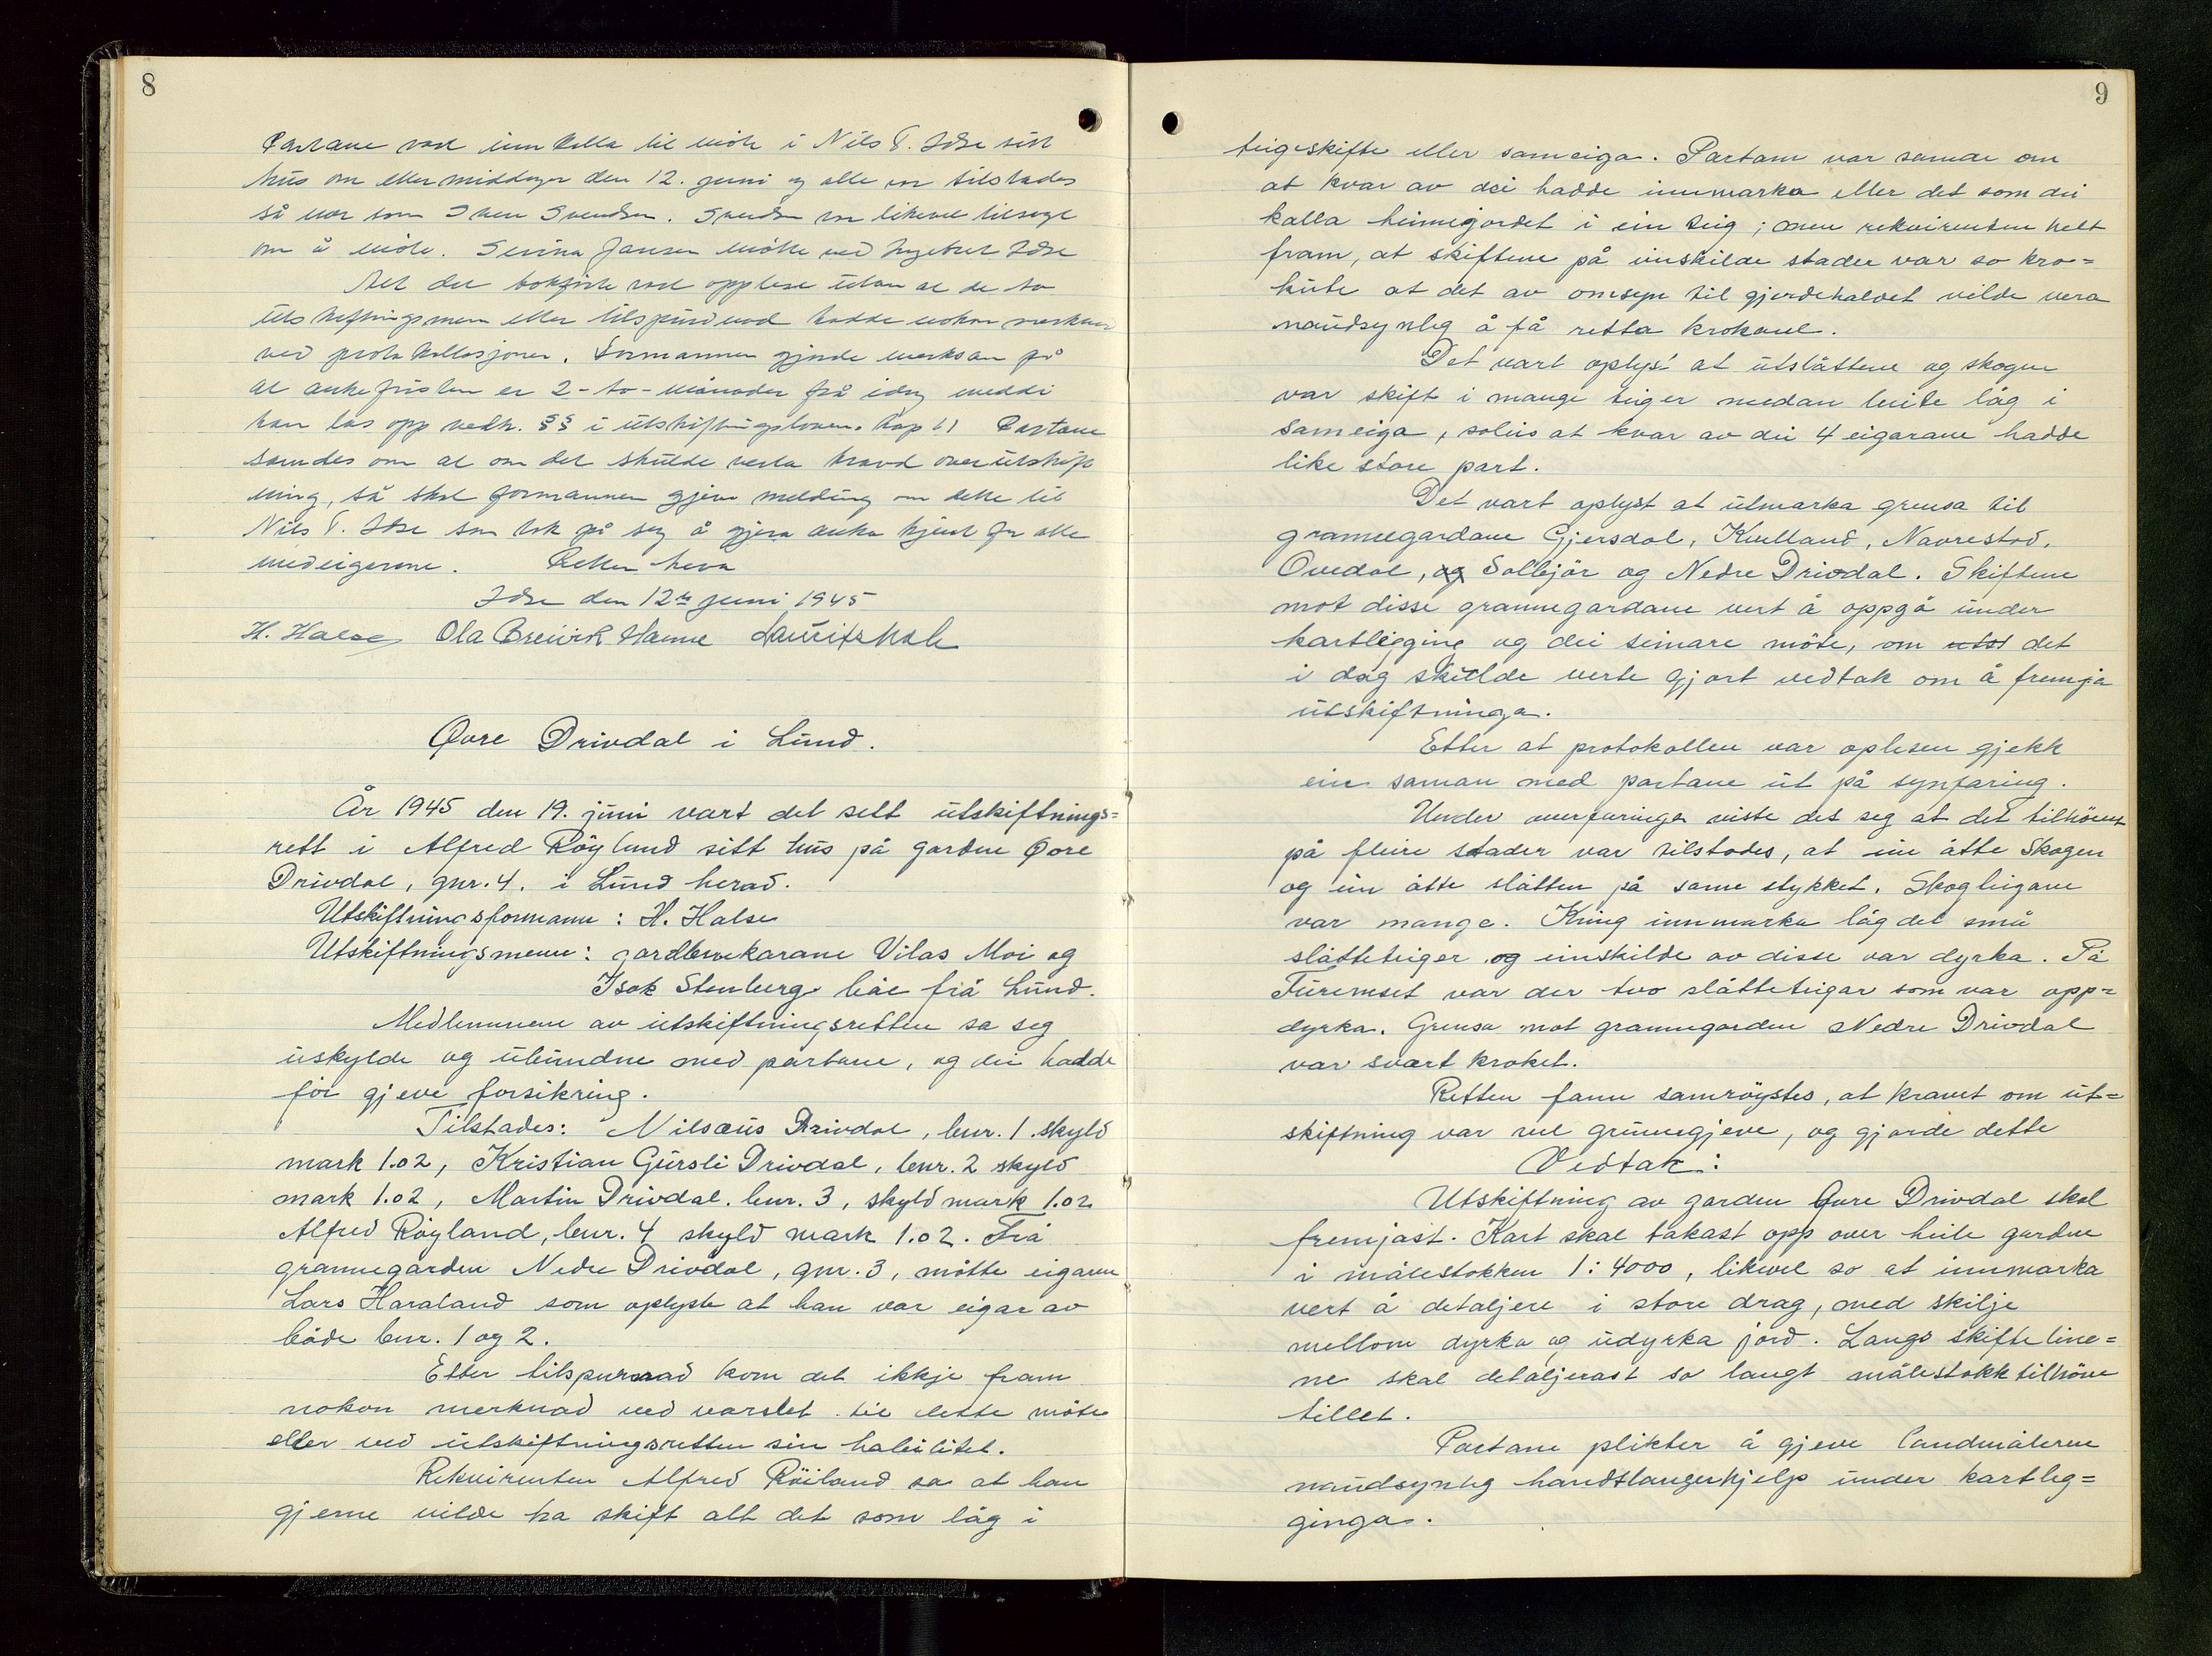 8
Partane vart innkalla til møte i Nils T. Idse sitt
hus om ettermiddagen den 12. juni og alle var tilstades
så nær som Sven Svendsen. Svendsen var likevel tilsagt
om å møte. Serina Jansen møtte ved Ingebret Idse
Alt det bokførte vart opplese utan at de to
utskiftningsmenn eller tilspurd nod hadde nokon merknad
ved protokollasjonen. Formannen gjorde merksam på
at ankefristen er 2-to-månader frå idag meddi
han las opp vedk. §§ i utskiftningsloven. kap 11 Partane
samdes om at om det skulde verta kravd overutskift
ning, så skal formannen gjeva melding om dette til
Nils T. Idse som tok på seg å gjera anka kjend for alle
medeigerane. Retten heva
Idse den 12te juni 1945
H. Halse Ola Breivik Hanne Lauritz Hole
Øvre Drivdal i Lund.
År 1945 den 19. juni vart det sett utskiftnings=
rett i Alfred Röyland sitt hus på garden Øvre
Drivdal, gnr. 4. i Lund herad.
Utskiftningsformann: H. Halse
Utskiftningsmenn: gardbrukarane Vilas Moi og
Isak Stenberg båe frå Lund.
Medlemmene av utskiftningsretten sa seg
uskylde og ubundne med partane, og dei hadde
för gjeve forsikring.
Tilstades: Nilsæus Drivdal, bnr. 1. skyld
mark 1.02, Kristian Gursli Drivdal, bnr. 2 skyld
mark 1.02, Martin Drivdal. bnr. 3, skyld mark 1.02
Alfred Röyland, bnr. 4 skyld mark 1.02. Frå
grannegarden Nedre Drivdal, gnr. 3, mötte eigaren
Lars Haraland som oplyste at han var eigar av
både bnr. 1 og 2.
Etter tilspurnad kom det ikkje fram
nokon merknad ved varslet til dette möte
eller ved utskiftningsretten sin habilitet.
Rekvirenten Alfred Röiland sa at han
gjerne vilde ha skift alt det som låg i
9
teigeskifte eller sameiga. Partane var samde om
at kvar av dei hadde innmarka eller det som dei
kalla heimejordet i ein teig; men rekvirenten helt
fram, at skiftene på einskilde stader var so kro=
kute at det av omsyn til gjerdehaldet vilde vera
naudsynleg å få retta krokane.
Det vart oplyst at utslåttene og skogen
var skift i mange teiger medan beite låg i
sameiga, soleis at kvar av dei 4 eigarane hadde
like store part.
Det vart oplyst at utmarka grensa til
grannegardane Gjersdal, Kvelland, Navrestad,
Ovedal, og Solbjör og Nedre Drivdal. Skiftene
mot disse grannegardane vert å oppgå under
kartlegging og dei seinare möte, om utst det
i dag skulde verte gjort vedtak om å fremja
utskiftninga.
Etter at protokollen var oplesen gjekk
ein saman med partane ut på synfaring.
Under synfaringa viste det seg at det tilhövet
på fleire stader var tilstades, at ein åtte skogen
og ein åtte slåtten på same stykket. Skogteigane
var mange. Kring innmarka låg det små
slåtteteiger og einskilde av disse var dyrka. På
Furemset var der tvo slåtteteigar som var opp=
dyrka. Grensa mot grannegarden Nedre Drivdal
var svært kroket.
Retten fann samröystes, at kravet om ut=
skiftning var vel grunngjeve, og gjorde dette
Vedtak:
Utskiftning av garden Øvre Drivdal skal
fremjast. Kart skal takast opp over heile garden
i målestokken 1:4000, likevel so at innmarka
vert å detaljere i store drag, med skilje
mellom dyrka og udyrka jord. Langs skifteline=
ne skal detaljerast so langt målestokktilhöve
tillet.
Partane plikter å gjeve landmåleren
naudsynleg handtlangerhjelp under kartleg=
ginga.